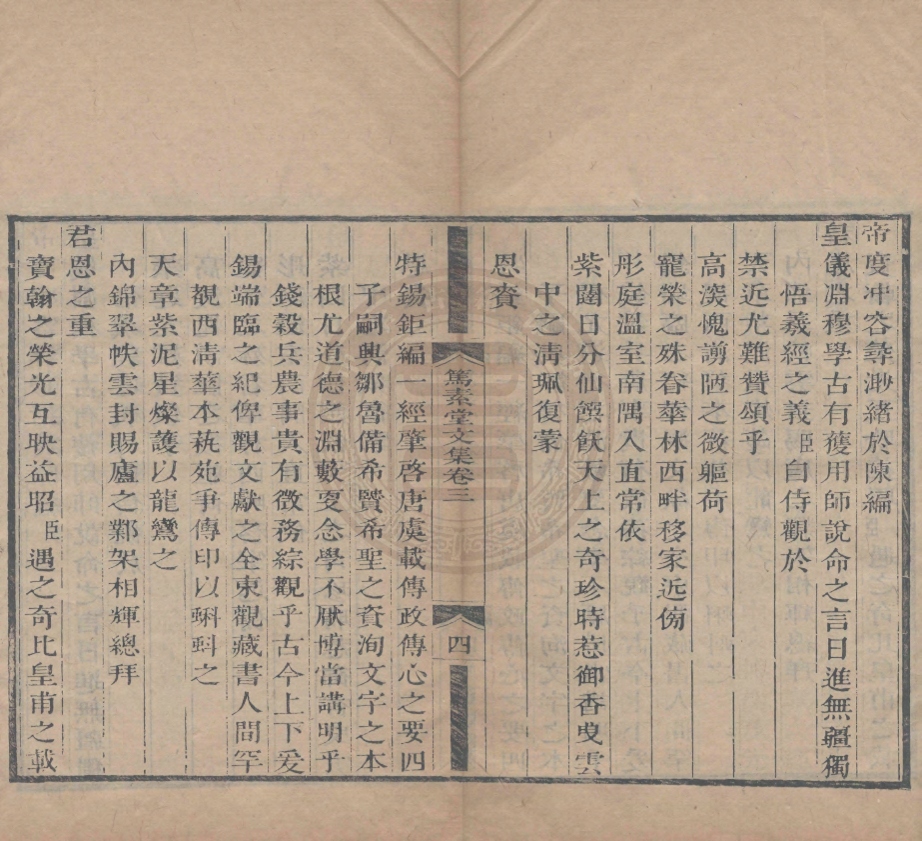 帝度冲容尋渺緒於陳編
皇儀淵穆學古有獲用師說命之言日進無疆獨
悟羲經之義臣自侍觀於
禁近尤難贊頌乎
高深愧謭陋之微軀荷
寵榮之殊眷華林西畔移家近傍
彤庭溫室南隅入直常依
紫闥日分仙饌飫天上之奇珍時惹御香曳雲
中之淸珮復蒙
恩賚
特錫鉅編一經肇啓唐虞載傳政傳心之要四
子嗣興鄒魯備希賢希聖之資洵文字之本
根尤道德之淵藪更念學不厭博當講明乎
錢穀兵農事貴有徵務綜觀乎古今上下爰
錫端臨之紀俾觀文獻之全東觀藏書人間罕
覩西淸華本蓺苑爭傳印以蝌蚪之
天章紫泥星燦護以龍鸞之
內錦翠帙雲封賜廬之鄴架相輝總拜
君恩之重
寶翰之榮光互映益昭臣遇之奇比皇甫之載
篤素堂文集卷三
四